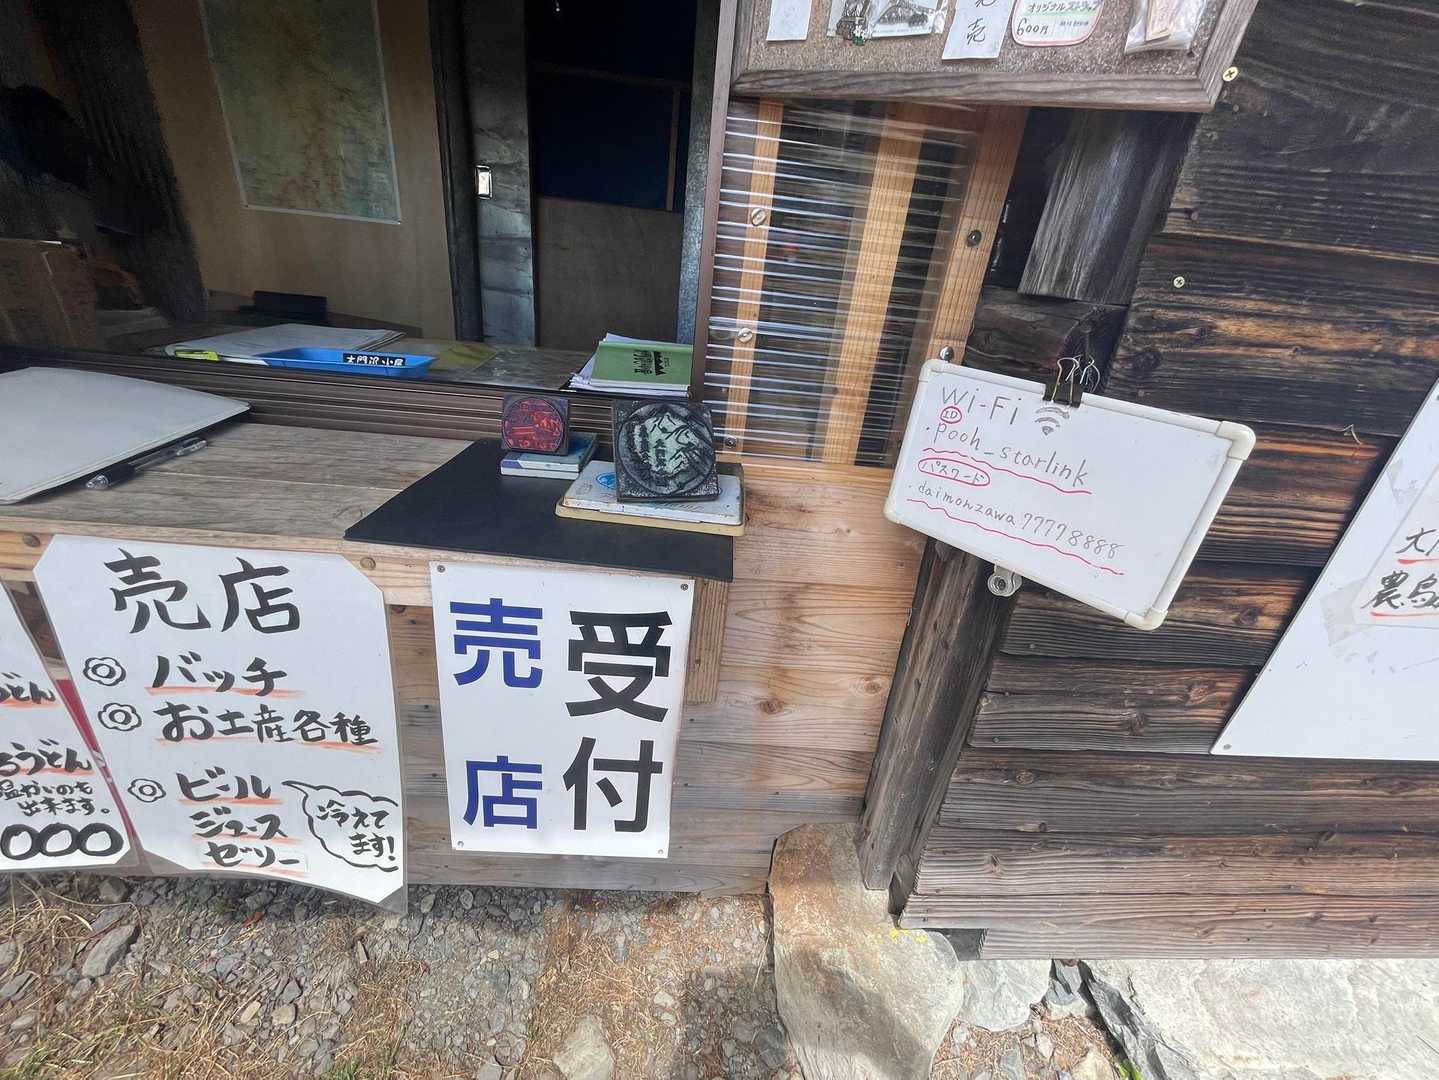 売
オリジナルストラップ
600円
大門沢小屋
Wi-Fi
ID
・pooh_starlink
パスワード
・daimonzawa77778888
売店
バッチ
お土産各種
ビール
ジュース
ゼリー
冷えて
ます!
受付
売店
うどん
うどん
出来ます。
000
大
農鳥